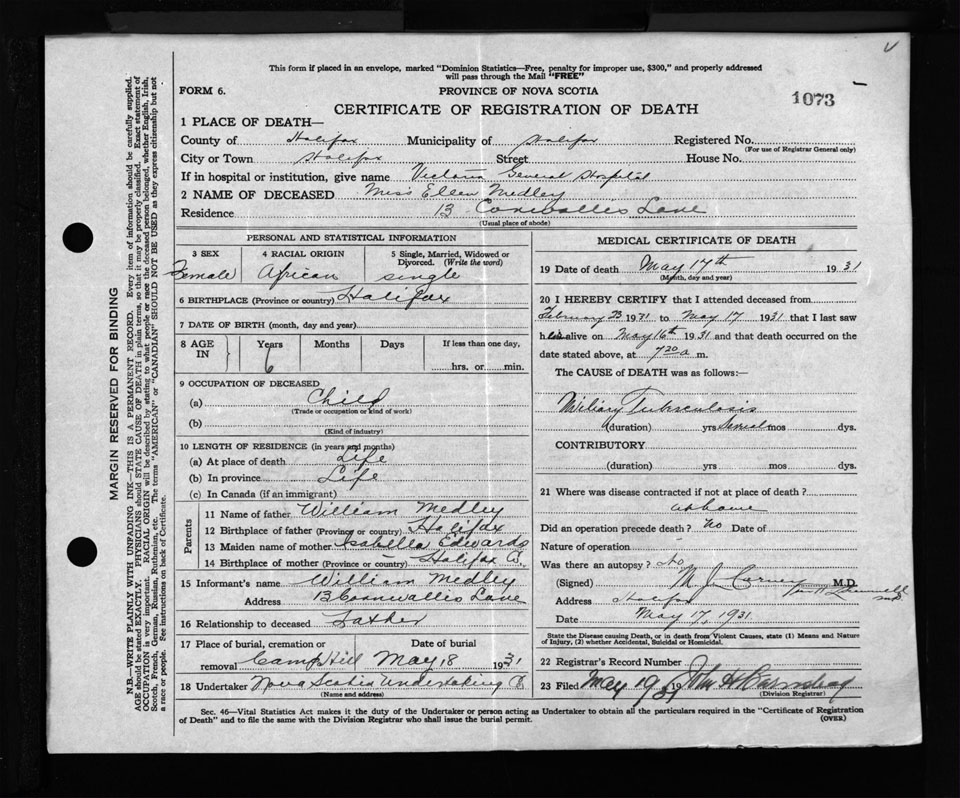 This form if placed in an envelope, marked "Dominion Statistics—Free, penalty for improper use, $300," and properly addressed
will pass through the Mail "FREE"
FORM 6. PROVINCE OF NOVA SCOTIA
CERTIFICATE OF REGISTRATION OF DEATH 1073
1 PLACE OF DEATH—
County of Halifax Municipality of Halifax Registered No.
(For use of Registrar General only)
City or Town Halifax Street House No.
If in hospital or institution, give name Victoria General Hospital
2 NAME OF DECEASED Miss Ellen Medley
Residence 13 Cornwallis Lane
(Usual place of abode)
PERSONAL AND STATISTICAL INFORMATION
3 SEX 4 RACIAL ORIGIN 5 Single, Married, Widowed or
Divorced. (Write the word)
Female African single
6 BIRTHPLACE (Province or country) Halifax
7 DATE OF BIRTH (month, day and year)
8 AGE IN Years Months Days If less than one day,
6 hrs. or min.
9 OCCUPATION OF DECEASED
(a) Child
(Trade or occupation or kind of work)
(b)
(Kind of industry)
10 LENGTH OF RESIDENCE (in years and months)
(a) At place of death Life
(b) In province Life
(c) In Canada (if an immigrant)
Parents
11 Name of father William Medley
12 Birthplace of father (Province or country) Halifax
13 Maiden name of mother Isabella Edwards
14 Birthplace of mother (Province or country) Halifax
15 Informant's name William Medley
Address 13 Cornwallis Lane
16 Relationship to deceased Father
17 Place of burial, cremation or Date of burial
removal Camp Hill May 18 1931
18 Undertaker Nova Scotia Undertaking
(Name and address)
MEDICAL CERTIFICATE OF DEATH
19 Date of death May 17th 1931
(Month, day and year)
20 I HEREBY CERTIFY that I attended deceased from
February 23 1931 to May 17 1931 that I last saw
her alive on May 16th 1931 and that death occurred on the
date stated above, at 7 20 a m.
The CAUSE of DEATH was as follows:—
Miliary Tuberculosis
(duration) yrs several mos dys.
CONTRIBUTORY
(duration) yrs mos dys.
21 Where was disease contracted if not at place of death?
at home
Did an operation precede death? no Date of
Nature of operation
Was there an autopsy? no
(Signed) M. J. Carney M.D.
Address Halifax
Date May 17, 1931
State the Disease causing Death, or in death from Violent Causes, state (1) Means and Nature
of Injury, (2) whether Accidental, Suicidal or Homicidal.
22 Registrar's Record Number
23 Filed May 19 1931
(Division Registrar)
Sec. 46—Vital Statistics Act makes it the duty of the Undertaker or person acting as Undertaker to obtain all the particulars required in the "Certificate of Registration
of Death" and to file the same with the Division Registrar who shall issue the burial permit. (OVER)
MARGIN RESERVED FOR BINDING
N.B.—WRITE PLAINLY WITH UNFADING INK—THIS IS A PERMANENT RECORD. Every item of information should be carefully supplied.
AGE should be stated EXACTLY. PHYSICIANS should STATE CAUSE OF DEATH in plain terms, so that it may be properly classified. Exact statement of
OCCUPATION is very important. RACIAL ORIGIN will be described by stating to what people or race the deceased person belonged, whether English, Irish,
Scotch, French, German, Russian, Ruthenian, etc. The terms "AMERICAN" or "CANADIAN" SHOULD NOT BE USED as they express citizenship but not
a race or people. See instructions on back of Certificate.